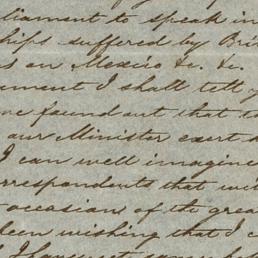 liament to speak in
ships suffered by Bri
s on Mexico &c. &c.
ament I shall tell y
ne found out that to
our Minister exert
I can well imagine
rrespondents that wil
occasions of the grea
been wishing that I c